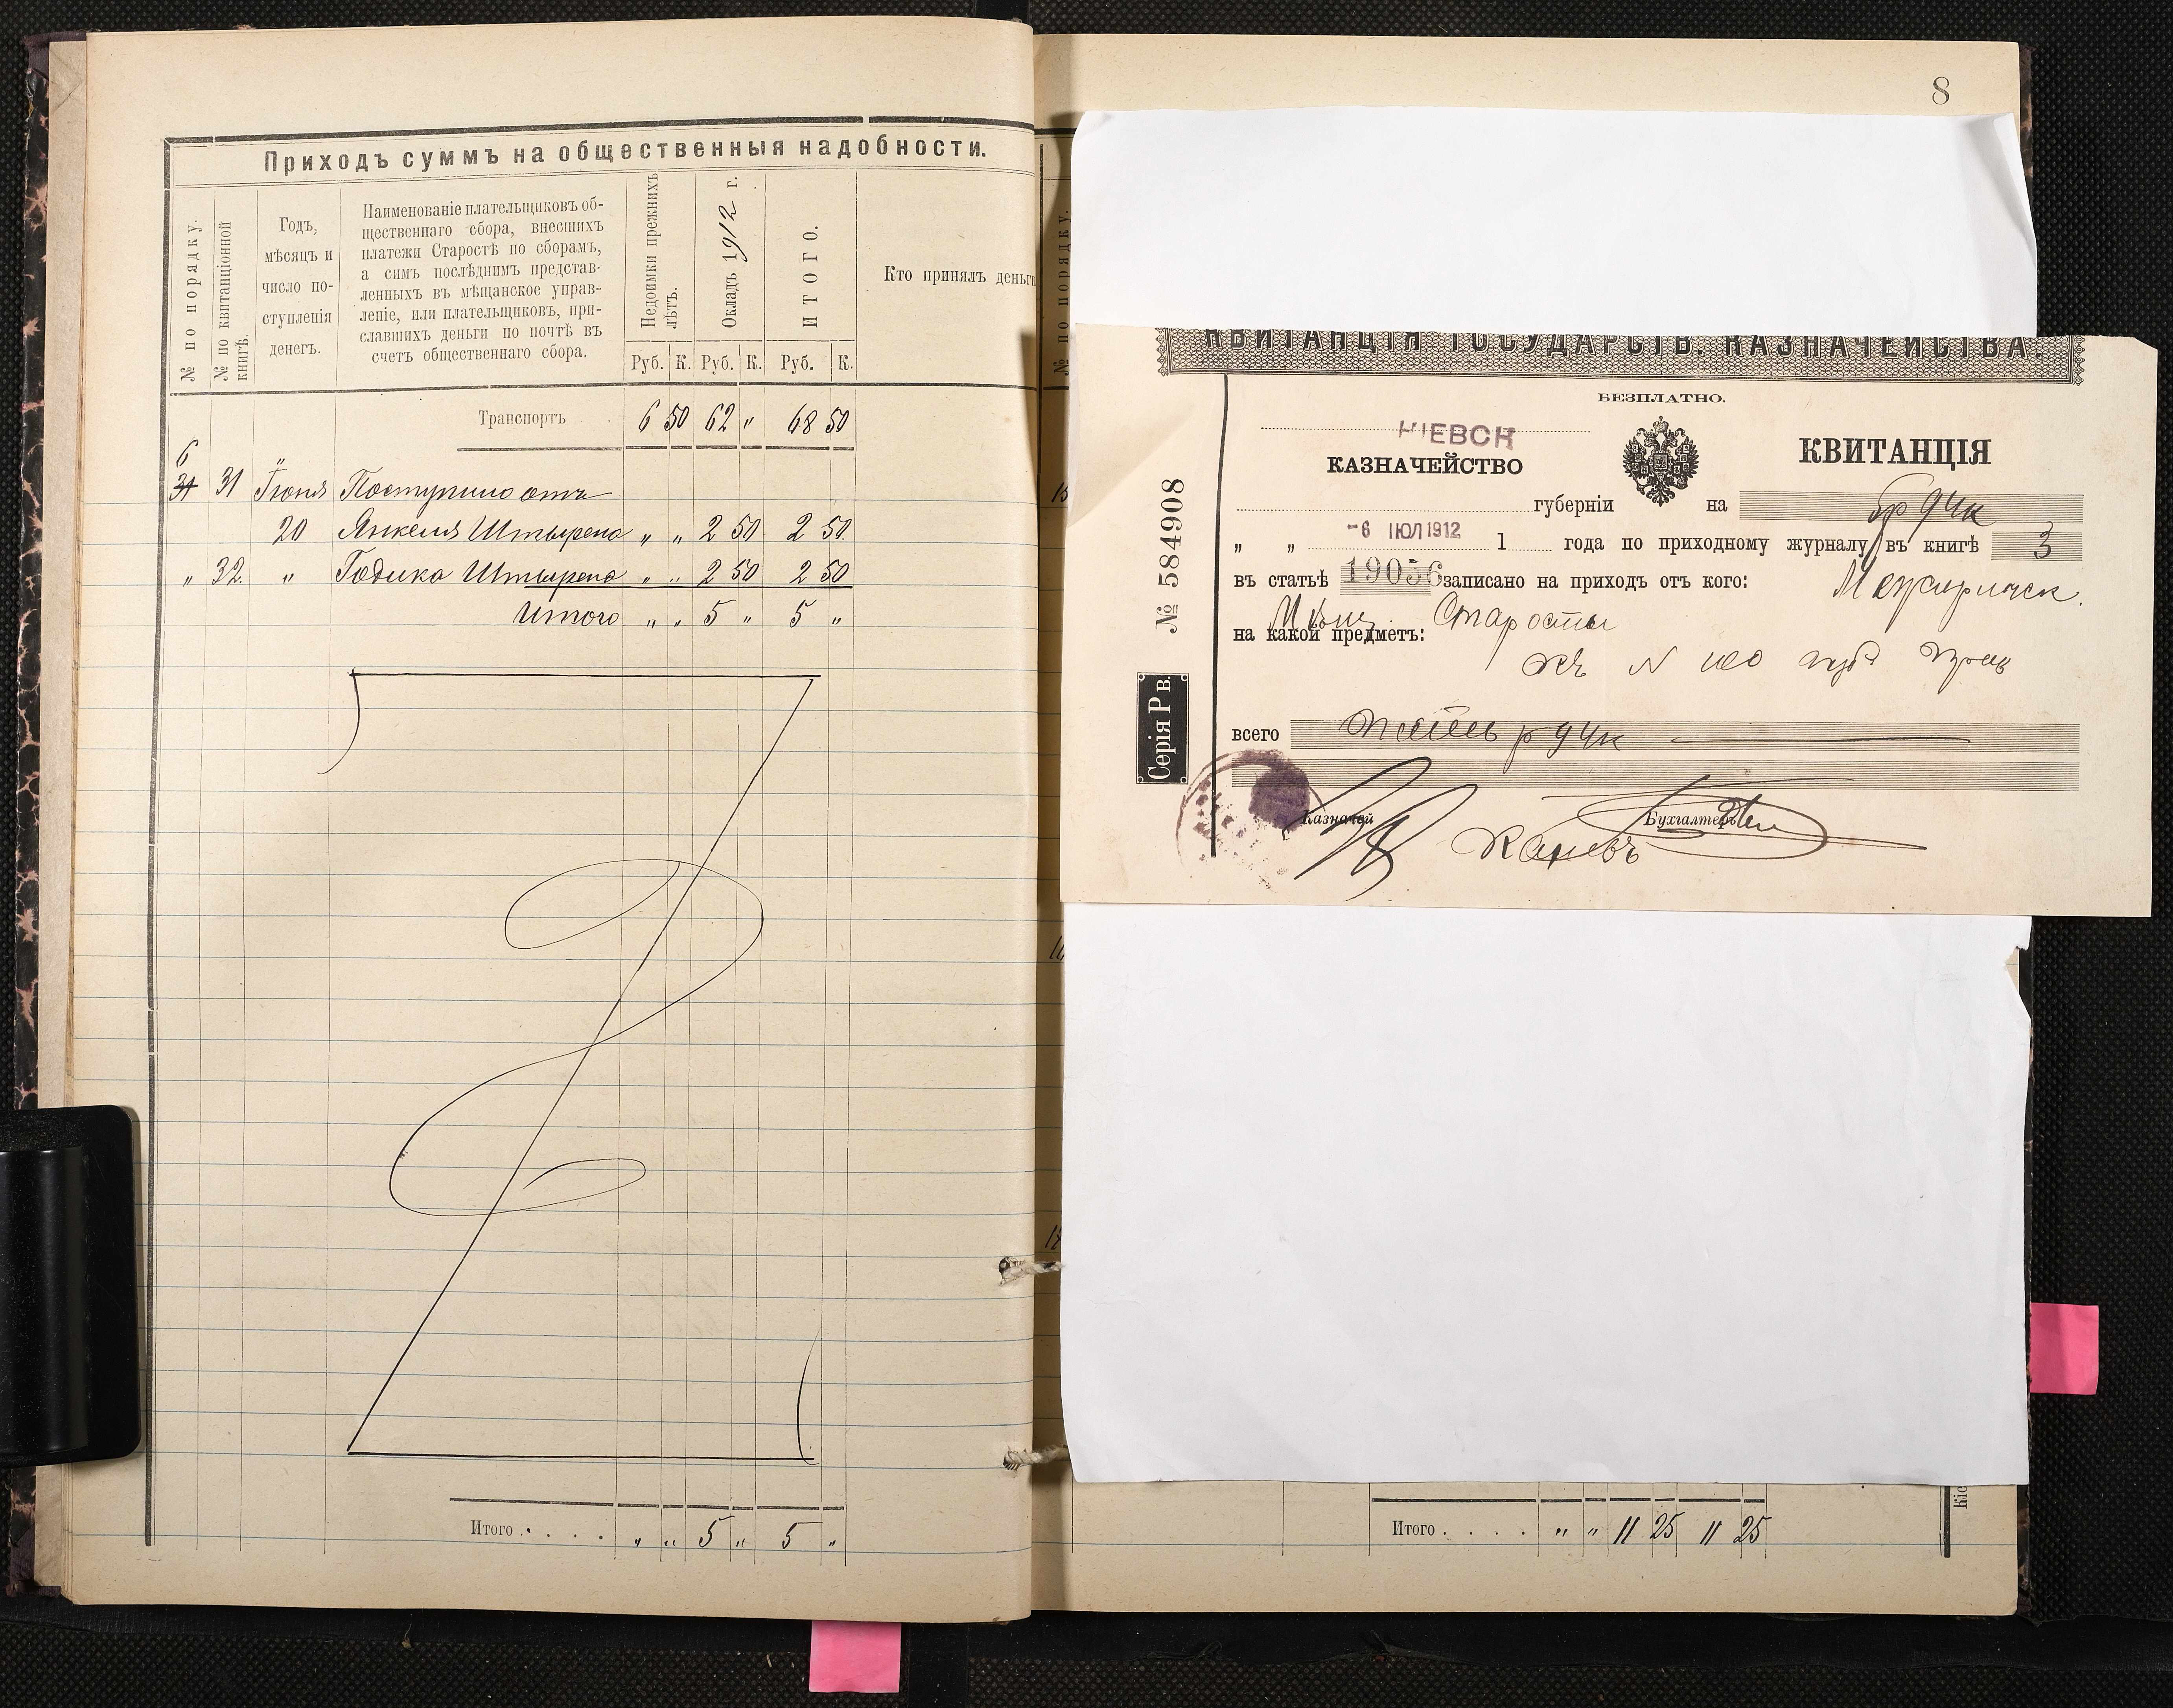 Приходъ суммъ на общественныя надобности.
№ по порядку.
№ по квитанціонной книгѣ.
Годъ,
мѣсяцъ и
число по-
ступленія
денегъ.
Наименованіе плательщиковъ об-
щественнаго сбора, внесшихъ
платежи Старостѣ по сборамъ,
а симъ послѣднимъ представ-
ленныхъ въ мѣщанское управ-
леніе, или плательщиковъ, при-
славшихъ деньги по почтѣ въ
счетъ общественнаго сбора.
Недоимки прежнихъ лѣтъ.
Окладъ 1912 г.
ИТОГО.
Кто принялъ деньги
Руб. К. Руб. К. Руб. К.
Транспортъ 6 50 62 „ 68 50
6
31 31 Іюня Поступило отъ
20 Янкеля Штырена „ „ 2 50 2 50
„ 32 „ Годика Штырена „ „ 2 50 2 50
Итого „ „ 5 „ 5 „
Итого . . . . „ „ 5 „ 5 „
8
№ по порядку.
КВИТАНЦІЯ ГОСУДАРСТВ. КАЗНАЧЕЙСТВА.
БЕЗПЛАТНО.
КІЕВСК
КАЗНАЧЕЙСТВО
КВИТАНЦІЯ
губерніи на 5р 94к
„ „ -6 ІЮЛ 1912 1 года по приходному журналу въ книгѣ 3
въ статьѣ 19056 записано на приходъ отъ кого: Межирическ.
Мѣщ. Старосты
на какой предметъ:
къ N 100
всего пять р 94к
Казначей Бухгалтеръ
№ 584908
Серія Р в.
Итого . . . . „ „ 11 25 11 25